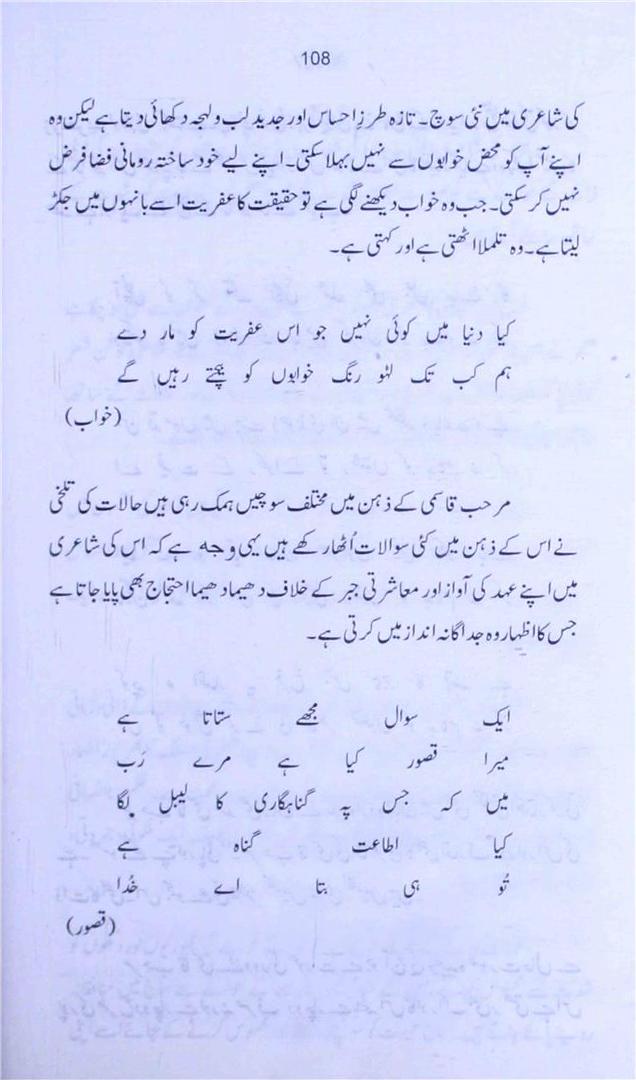 108
کی شاعری میں نئی سوچ۔ تازہ طرزِ احساس اور جدید لب و لہجہ دکھائی دیتا ہے لیکن وہ
اپنے آپ کو محض خوابوں سے نہیں بہلا سکتی۔ اپنے لیے خود ساختہ رومانی فضا فرض
نہیں کر سکتی۔ جب وہ خواب دیکھنے لگی ہے تو حقیقت کا عفریت اسے بانہوں میں جکڑ
لیتا ہے۔ وہ تلملا اٹھتی ہے اور کہتی ہے۔
کیا دنیا میں کوئی نہیں جو اس عفریت کو مار دے
ہم کب تک لہو رنگ خوابوں کو بیچتے رہیں گے
(خواب)
مرحب قاسمی کے ذہن میں مختلف سوچیں ہمک رہی ہیں حالات کی تلخی
نے اس کے ذہن میں کئی سوالات اُٹھا رکھے ہیں یہی وجہ ہے کہ اس کی شاعری
میں اپنے عہد کی آواز اور معاشرتی جبر کے خلاف دھیما دھیما احتجاج بھی پایا جاتا ہے
جس کا اظہار وہ جداگانہ انداز میں کرتی ہے۔
ایک سوال مجھے ستاتا ہے
میرا قصور کیا ہے مرے رَب
میں کہ جس پہ گناہگاری کا لیبل لگا
کیا اطاعت گناہ ہے
تُو ہی بتا اے خُدا
(قصور)